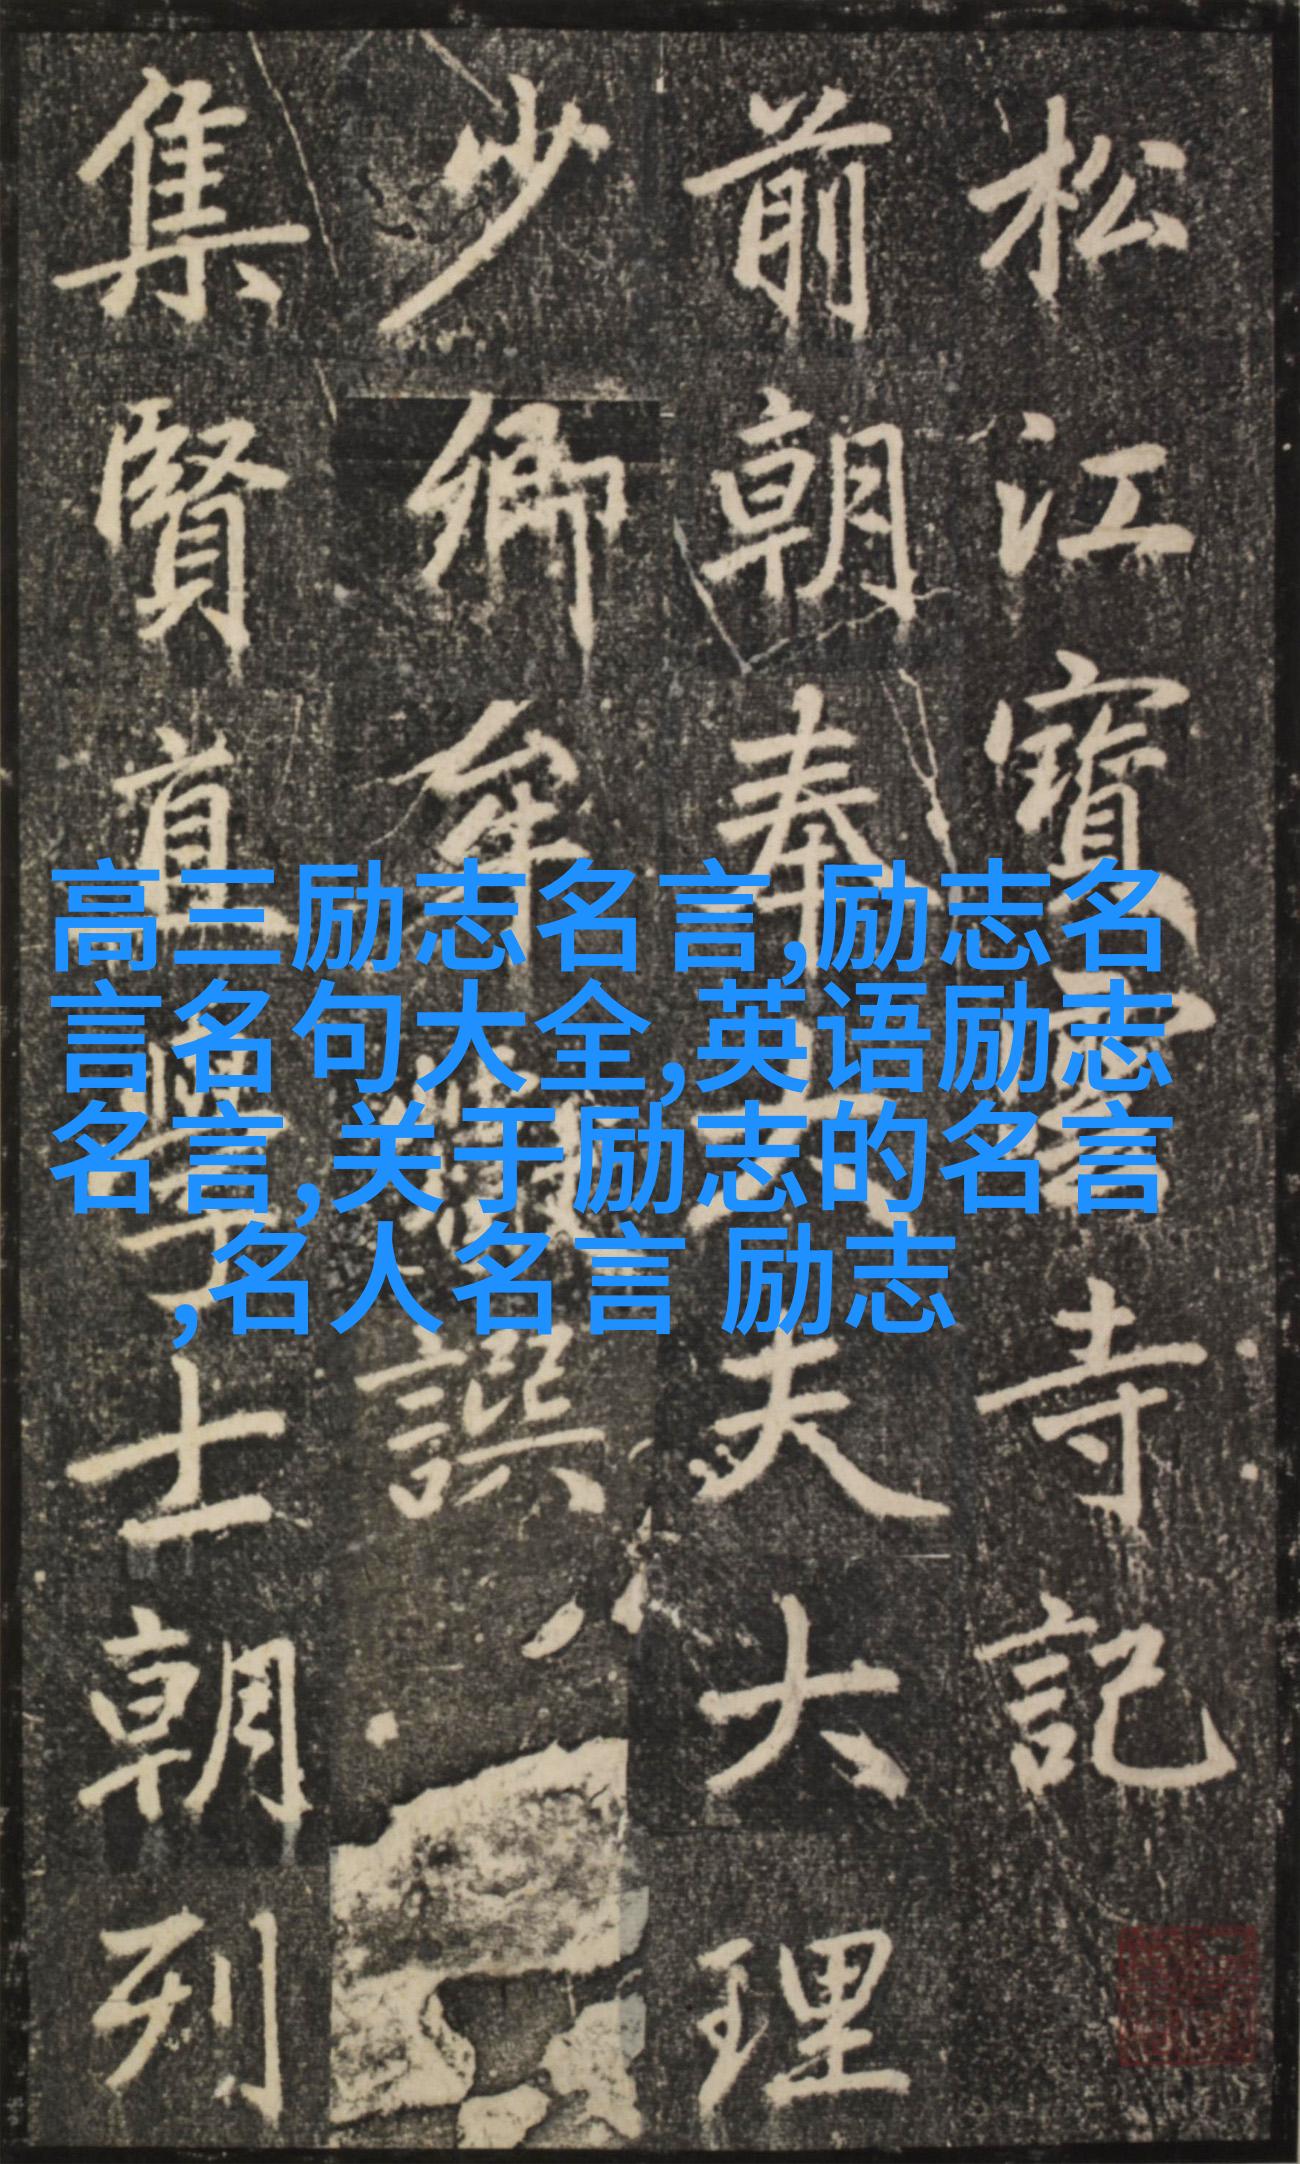 松江寶雲寺記
前朝奉大夫大理
少卿牟巘譔
集賢直學士朝列
高三励志名言,励志名
言名句大全,英语励志
名言,关于励志的名言
,名人名言 励志